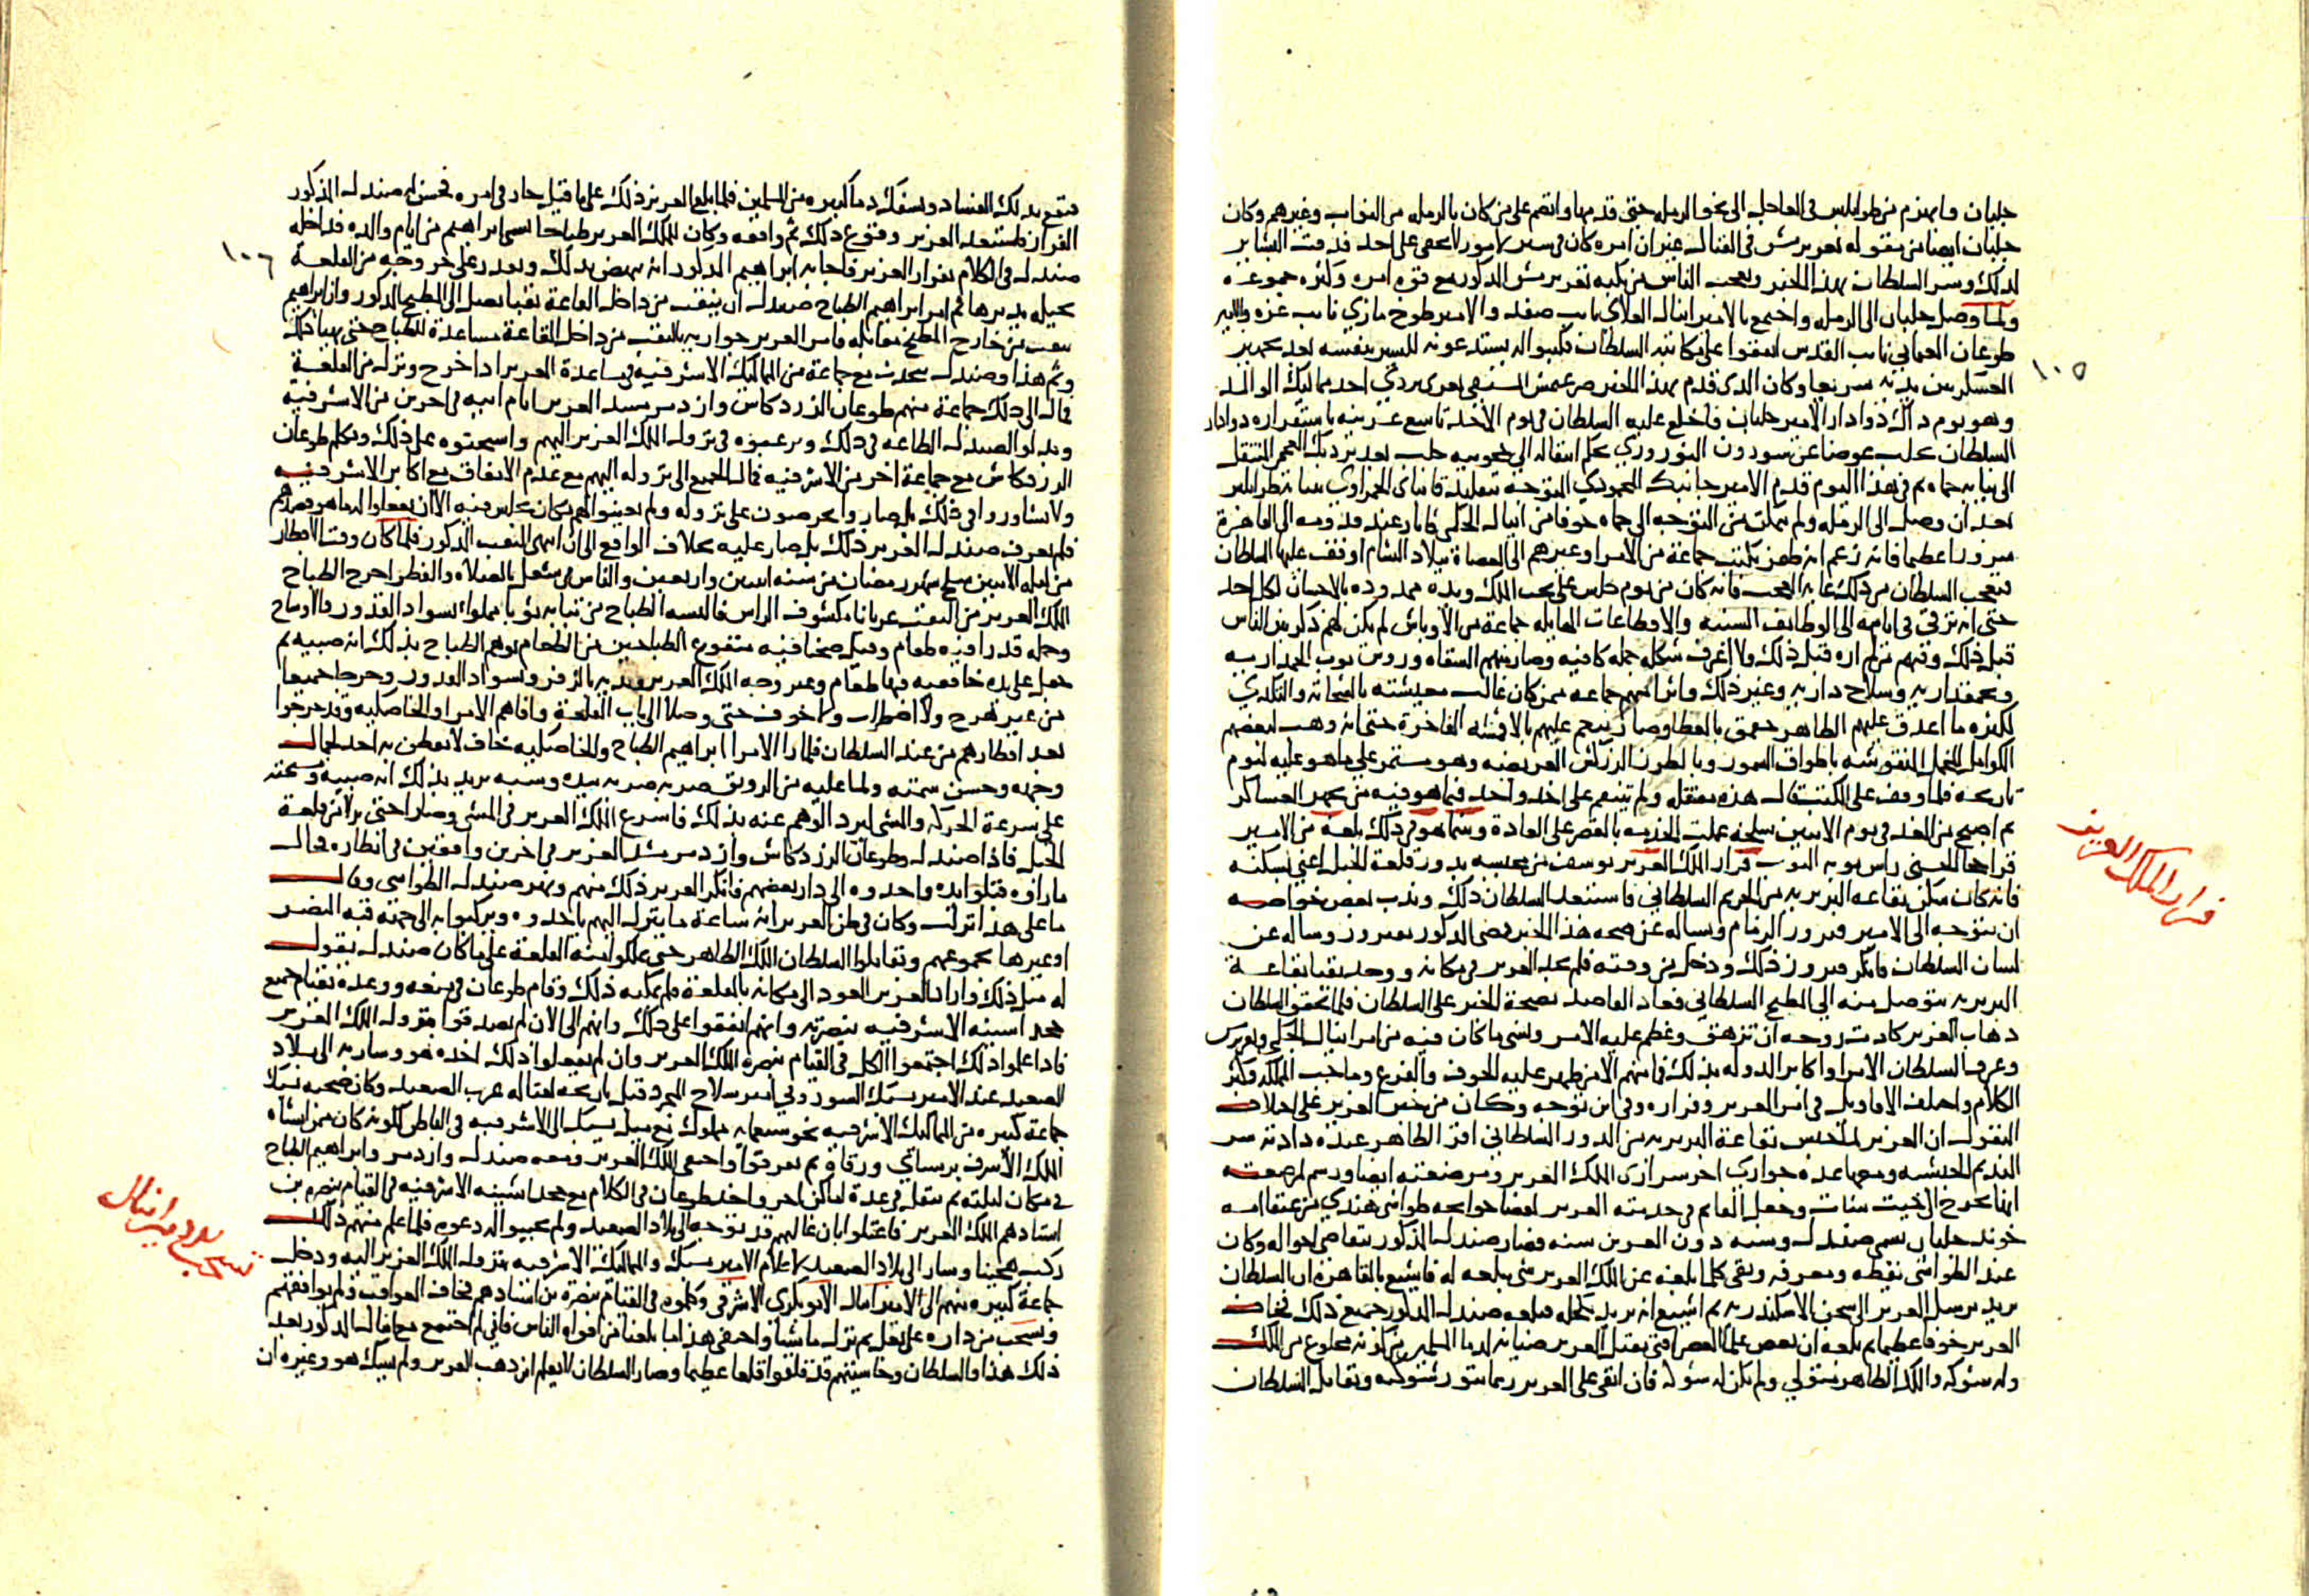 جلبان وانهزم من طرابلس في الساحل الى نحو الرمله حتى قدمها وانضم على من كان بالرمله من النواب وغيرهم وكان
جلبان ايضا من مقوله تغرى برمش في القتال غير ان امره كان في ستر لامور لا تخفى على احد فدقت البشاير
لذلك وسر السلطان بهذا الخبر وتعجب الناس من نكبه تغرى برمش المذكور مع قوة امره وكثره جموعه
ولما وصل جلبان الى الرمله واجتمع بالامير اينال العلاى نايب صفد والامير طوخ مازي نايب غزه والامير
طوغان العثماني نايب القدس اتفقوا على مكاتبة السلطان فكتبوا له يستدعونه للسير بنفسه بعد تجهيز
العساكر بين يديه سريعا وكان الذى قدم بهذا الخبر صرغتمش السيفى تغرى بردي احد مماليك الوالد
وهو يوم ذاك دوادار الامير جلبان فاخلع عليه السلطان في يوم الاحد تاسع عشرينه باستقراره دوادار
السلطان بحلب عوضا عن سودون النوروزي بحكم انتقاله الى حجوبيه حلب بعد بردبك العجمي المنتقل
الى نيابه حماه ثم في هذا اليوم قدم الامير جانبك المحمودي المتوجه بتقليد قانباى الحمزاوي بنيابة طرابلس
بعد ان وصل الى الرمله ولم يتمكن من التوجه الى حماه خوفا من اينال الجكمى
سرورا عظيما فانه زعم انه ظفر بكتب جماعة من الامرا وغيرهم الى العصاة ببلاد الشام اوقف عليها السلطان
تعجب السلطان من ذلك غايه العجب فانه كان من يوم جلس على تخت الملك ويده ممدوده بالاحسان لكل احد
حتى انه ترقى في ايامه الى الوظايف السنيه والاقطاعات الهايله جماعة من الاوباش لم يكن لهم ذكر بين الناس
قبل ذلك ومنهم من لم اره قبل ذلك ولا اعرف شكله جمله كافيه وصار منهم السقاه وروس نوب الجمداريه
وبجمقداريه وسلاح داريه وغير ذلك واثرا منهم جماعه ممن كان غالب معيشته بالشحاته والتكدي
لكثره ما اغدق عليهم الظاهر جقمق بالعطا وصار ينعم عليهم بالاقمشه الفاخرة حتى انه وهب لبعضهم
الكوامل المخمل المنقوشه باطواق السمور وبالطرز الزركش العريضه وهو مستمر على ما هو عليه ليوم
تاريخه فلما وقف على الكتب قال هذه مفتعله ولم ينتقم على احد واخذ فيما هو فيه من تجهيز العساكر
ثم اصبح من الغد في يوم الاثنين سلخه عملت الخدمه بالقصر على العادة وبينما هو في ذلك بلغه من الامير
قراجا الحسنى راس نوبه النوب فرار الملك العزيز يوسف من محبسه بدور قلعة الجبل اعني بسكنه
فانه كان سكن بقاعه البربريه من الحريم السلطاني فاستبعد السلطان ذلك وندب بعض خواصه
ان يتوجه الى الامير فيروز الزمام ويساله عن صحه هذا الخبر فمضى المذكور لفيروز وساله عن
لسان السلطان فانكر فيروز ذلك ودخل من وقته فلم يجد العزيز في مكانه ووجد نقبا بقاعة
البربريه يتوصل منه الى المطبخ السلطاني فعاد القاصد بصحة الخبر على السلطان فلما تحقق السلطان
ذهاب العزيز كادت روحه ان تزهق وعظم عليه الامر ونسى ما كان فيه من امر اينال الجكمى وتغرى برمش
وعرف السلطان الامرا واكابر الدوله بذلك فما منهم الا من ظهر عليه الخوف والفزع وماجت المملكه وكثر
الكلام واختلفت الاقاويل في امر العزيز وفراره وفي اين توجه وكان من خبر العزيز على اختلاف
النقول ان العزيز لما حبس بقاعة البربريه من الدور السلطاني افرد الظاهر عنده دادته سر
النديم الحبشيه ومعها عدة جوارى اخر سرارى الملك العزيز ومرضعته ايضا ورسم لمرضعته
انها تخرج الى حيث شات وجعل القايم في خدمته العزيز لقضا حوايجه طواشى هندي من عتقا امه
خوند جلبان يسمى صندل وسنه دون العشرين سنه فصار صندل المذكور يتقاضى احواله وكان
عند الطواشى يقظه ومعرفه وبقى كلما بلغه عن الملك العزيز شئ يبلغه له فاشيع بالقاهره ان السلطان
يريد يرسل العزيز الى سجن الاسكندريه ثم اشيع انه يريد يكحله فبلغه صندل المذكور جميع ذلك فخاف
العزيز خوفا عظيما ثم بلغه ان بعض علما العصر افتى بقتل العزيز صيانة لدما المسلمين من كونه مخلوع من الملك
وله شوكه والملك الظاهر متولي ولم يكن له شوكه فان ابقى على العزيز ربما تثور شوكته وتقابل السلطان
١٠٥
فرار الملك العزيز
فيقع بذلك الفساد وسفك دما كثيره من المسلمين فلما بلغ العزيز ذلك على ما قيل حار في امره فحسن له صندل المذكور
الفرار فاستبعد العزيز وقوع ذلك ثم وافقه وكان للملك العزيز طباخا يسمى ابراهيم من ايام والده فداخله
صندل في الكلام بفرار العزيز فاجابه ابراهيم المذكور انه ينهض بذلك ويقدر على خروجه من القلعة
بحيله يدبرها ثم امر ابراهيم الطباخ صندل ان ينقب من داخل القاعة نقبا يصل الى المطبخ المذكور وان ابراهيم
ينقب من خارج المطبخ مقابله فامر العزيز جواريه بالنقب من داخل القاعة مساعدة للطباخ حتى تهيا ذلك
وتم هذا وصندل يتحدث مع جماعة من المماليك الاشرفيه في مساعدة العزيز اذا خرج ونزل من القلعة
فمال الى ذلك جماعة منهم طوغان الزردكاش وازدمر مشد العزيز ايام ابيه في اخرين من الاشرفية
وبذلوا لصندل الطاعه في ذلك ورغبوه في نزول الملك العزيز اليهم واستحثوه على ذلك وتكلم طوغان
الزردكاش مع جماعة اخر من الاشرفيه فمال الجميع الى نزوله اليهم مع عدم الاتفاق مع اكابر الاشرفيه
ولا تشاوروا في ذلك بل صاروا يحرصون على نزوله ولم يعينوا لهم مكان يجلس فيه
فلم يعرف صندل العزيز ذلك بل صار عليه بخلاف الواقع الى ان انتهى النقب المذكور فلما كان وقت الافطار
من ليله الاثنين سلخ شهر رمضان من سنه اثنين واربعين والناس في شغل بالصلاه والفطر اخرج الطباخ
الملك العزيز من النقب عريانا مكشوف الراس فالبسه الطباخ من ثيابه ثوبا مملوا بسواد القدور والاوساخ
وحمله قدرا فيه طعام وقيل صحنا فيه منقوع الطباخين من الطعام يوهم الطباخ بذلك انه صبيه ثم
جعل على يده خافقيه فيها طعام وغير وجه الملك العزيز ويديه بالزفر وسواد القدور وخرجا جميعا
من غير هرج ولا اضطراب ولا خوف حتى وصلا الى باب القلعة وافاهم الامرا والخاصكيه وقد خرجوا
بعد افطارهم من عند السلطان فلما را الامرا ابراهيم الطباخ والخاصكيه خاف لا يفطن به احد لجمال
وجهه وحسن سمته ولما عليه من الرونق ضربه ضربه بيده وسبه يريد بذلك انه صبيه وسحته
على سرعة الحركه والمشى ليرد الوهم عنه بذلك فاسرع الملك العزيز في المشى وصارا حتى نزلا من قلعة
الجبل فاذا صندل وطوغان الزردكاش وازدمر مشد العزيز في اخرين واقفين في انتظاره فحال
ما راوه قبلوا يده واخدوه الى دار بعضهم فانكر العزيز ذلك منهم ونهر صندل الطواشى وقال
ما على هذا نزلت وكان في ظن العزيز انه ساعة ما ينزل اليهم ياخدوه ويركبوا به الى جهة قبه النصر
او غيرها بجموعهم ويقاتلوا السلطان الملك الظاهر حتى يملكوا منه القلعة على ما كان صندل يقول
له مثل ذلك فاراد العزيز العود الى مكانه بالقلعة فلم يمكنه ذلك وقام طوغان في منعه ووعده بقيام جميع
خجداشيته الاشرفيه بنصرته وانهم اتفقوا على ذلك وانهم الى الان لم يصدقوا بنزول الملك العزيز
فاذا علموا ذلك اجتمعوا الكل في القيام بنصره الملك العزيز وان لم يفعلوا ذلك اخذه هو وسار به الى بلاد
الصعيد عند الامير يشبك السودوني امير سلاح المجرد قبل تاريخه لقتال عرب الصعيد وكان صحبه يشبك
جماعة كبيره من المماليك الاشرفيه نحو سبعمايه مملوك
الملك الاشرف برسباي ورقاه ثم تفرقوا واختفى الملك العزيز ومعه صندل وازدمر وابراهيم الطباخ
في مكان ليلته ثم تنقل في عدة اماكن اخر واخذ طوغان في الكلام مع خجداشيته الاشرفيه في القيام بنصره ابن
استادهم الملك العزيز فاعتلوا بان غالبهم قد توجه الى بلاد الصعيد ولم يجيبوا له دعوه فلما علم منهم ذلك
ركب هجينا وسار الى بلاد الصعيد لاعلام الامير يشبك والمماليك الاشرفيه بنزول الملك العزيز اليه ودخل
جماعة كبيره منهم الى الامير اينال الابوبكري الاشرفي وكلموه في القيام بنصرة بن استادهم فخاف العواقب ولم يوافقهم
وتسحب من داره على بغل ثم نزل ماشيا واختفى هذا ما بلغنا من افواه الناس فاني لم اجتمع مع اينال المذكور بعد
ذلك هذا والسلطان وحاشيتهم قد قلقوا قلقا عظيما وصار السلطان لا يعلم اين ذهب العزيز ولم يشك هو وغيره ان
١٠٦
تسحب الامير اينال